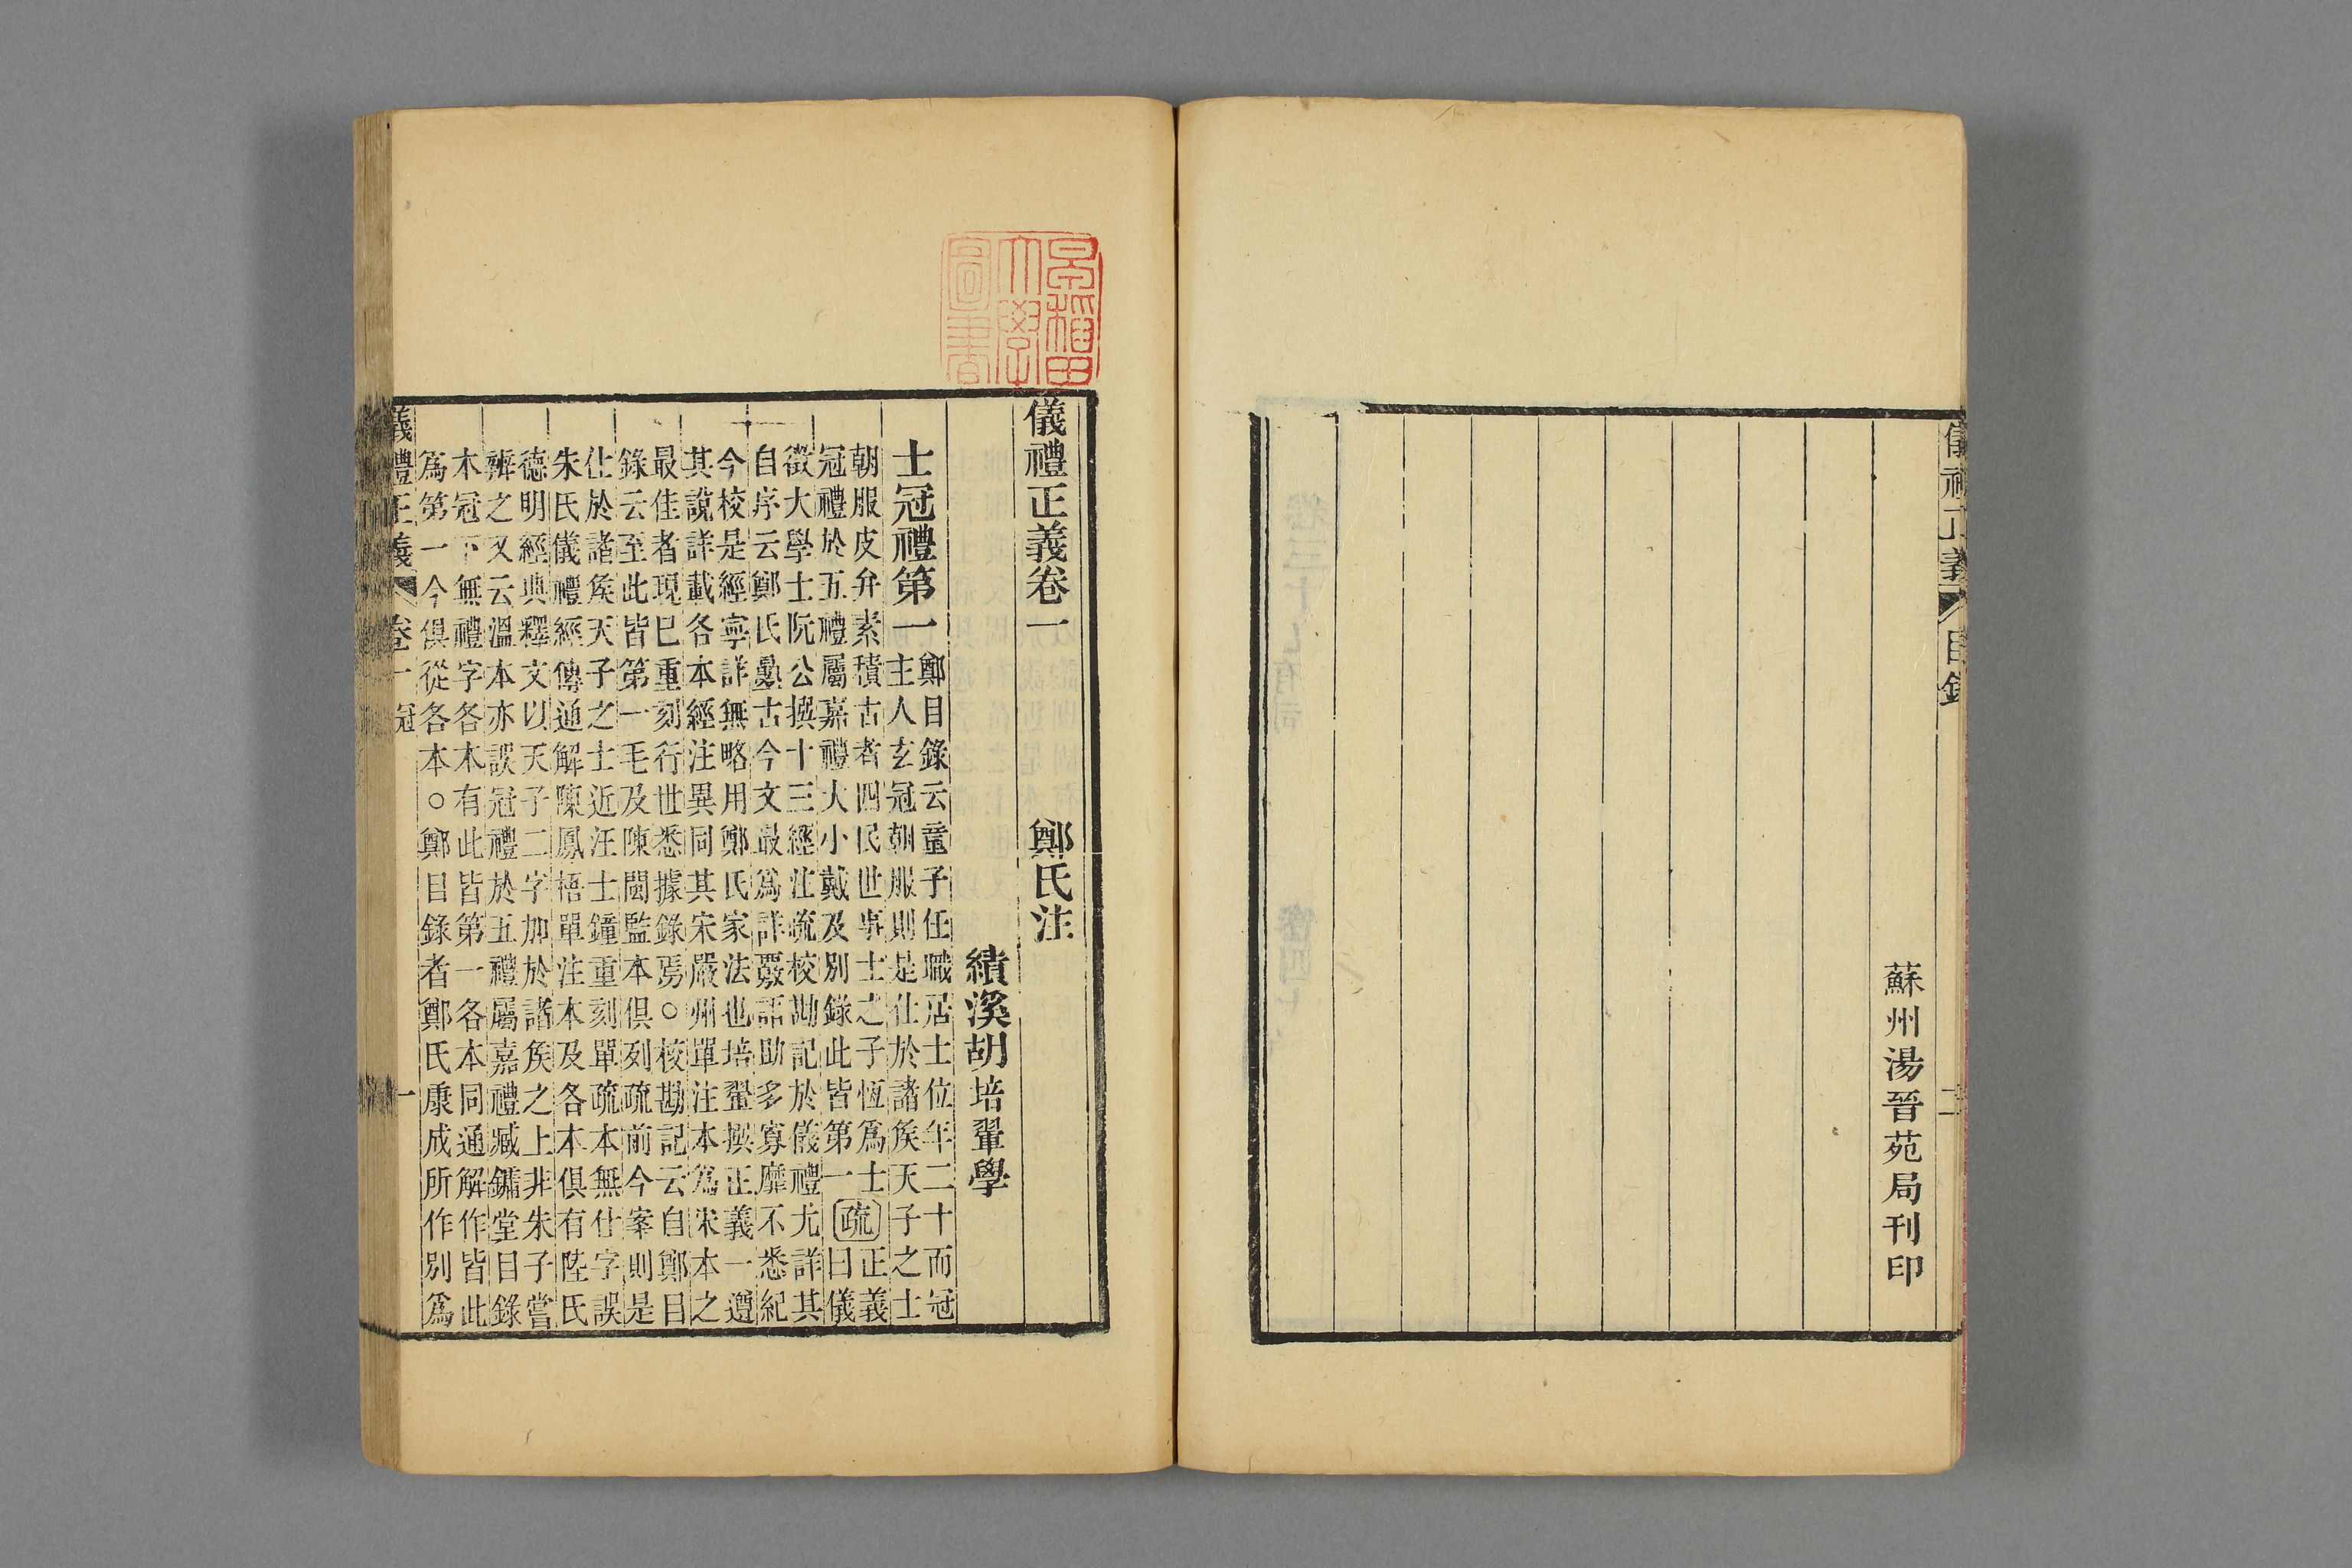 蘇州湯晉苑局刊印
早稻田
大學
圖書
儀禮正義卷一　鄭氏注
績溪胡培翬學
士冠禮第一
鄭目錄云童子任職居士位年二十而冠
主人玄冠朝服則是仕於諸矦天子之士
朝服皮弁素積古者四民世事士之子恆爲士
冠禮於五禮屬嘉禮大小戴及別錄此皆第一
疏
正義
曰儀
徵大學士阮公撰十三經注疏校勘記於儀禮尤詳其
自序云鄭氏疊古今文最爲詳覈語助多寡靡不悉紀
今校是經寧詳無略用鄭氏家法也培翬撰正義一遵
其說詳載各本經注異同其宋嚴州單注本爲宋本之
最佳者現巳重刻行世悉據錄焉○校勘記云自鄭目
錄云至此皆第一毛及陳閩監本俱列疏前今案則是
仕於諸矦天子之士近汪士鐘重刻單疏本無仕字誤
朱氏儀禮經傳通解陳鳳梧單注本及各本俱有陸氏
德明經典釋文以天子二字加於諸矦之上非朱子嘗
辨之又云溫本亦誤冠禮於五禮屬嘉禮臧鏞堂目錄
本冠下無禮字各本有此皆第一各本同通解作皆此
爲第一今俱從各本○鄭目錄者鄭氏康成所作別爲